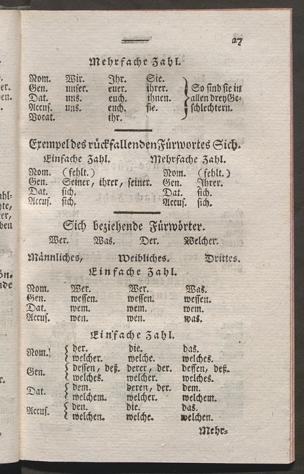 27
Mehrfache Zahl.
Nom. Wir. Ihr. Sie.
Gen. unser. euer. ihrer. So sind sie in
Dat. uns. euch. ihnen. allen drey Ge-
Accus. uns. euch. sie. schlechtern.
Vocat. ihr.
Exempel des rückfallenden Fürwortes Sich.
Einfache Zahl. Mehrfache Zahl.
Nom. (fehlt.) Nom. (fehlt.)
Gen. Seiner, ihrer, seiner. Gen. Ihrer.
Dat. sich. Dat. sich.
Accus. sich. Accus. sich.
Sich beziehende Fürwörter.
Wer. Was. Der. Welcher.
Männliches, Weibliches. Drittes.
Einfache Zahl.
Nom. Wer. Wer. Was.
Gen. wessen. wessen. wessen.
Dat. wem. wem. wem.
Accus. wen. wen. was.
Einfache Zahl.
Nom. der. die. das.
welcher. welche. welches.
Gen. dessen, deß. derer, der. dessen, deß.
welches. welcher. welches.
Dat. dem. deren, der. dem.
welchem. welcher. welchem.
Accus. den. die. das.
welchen. welche. welchen.
Mehr-